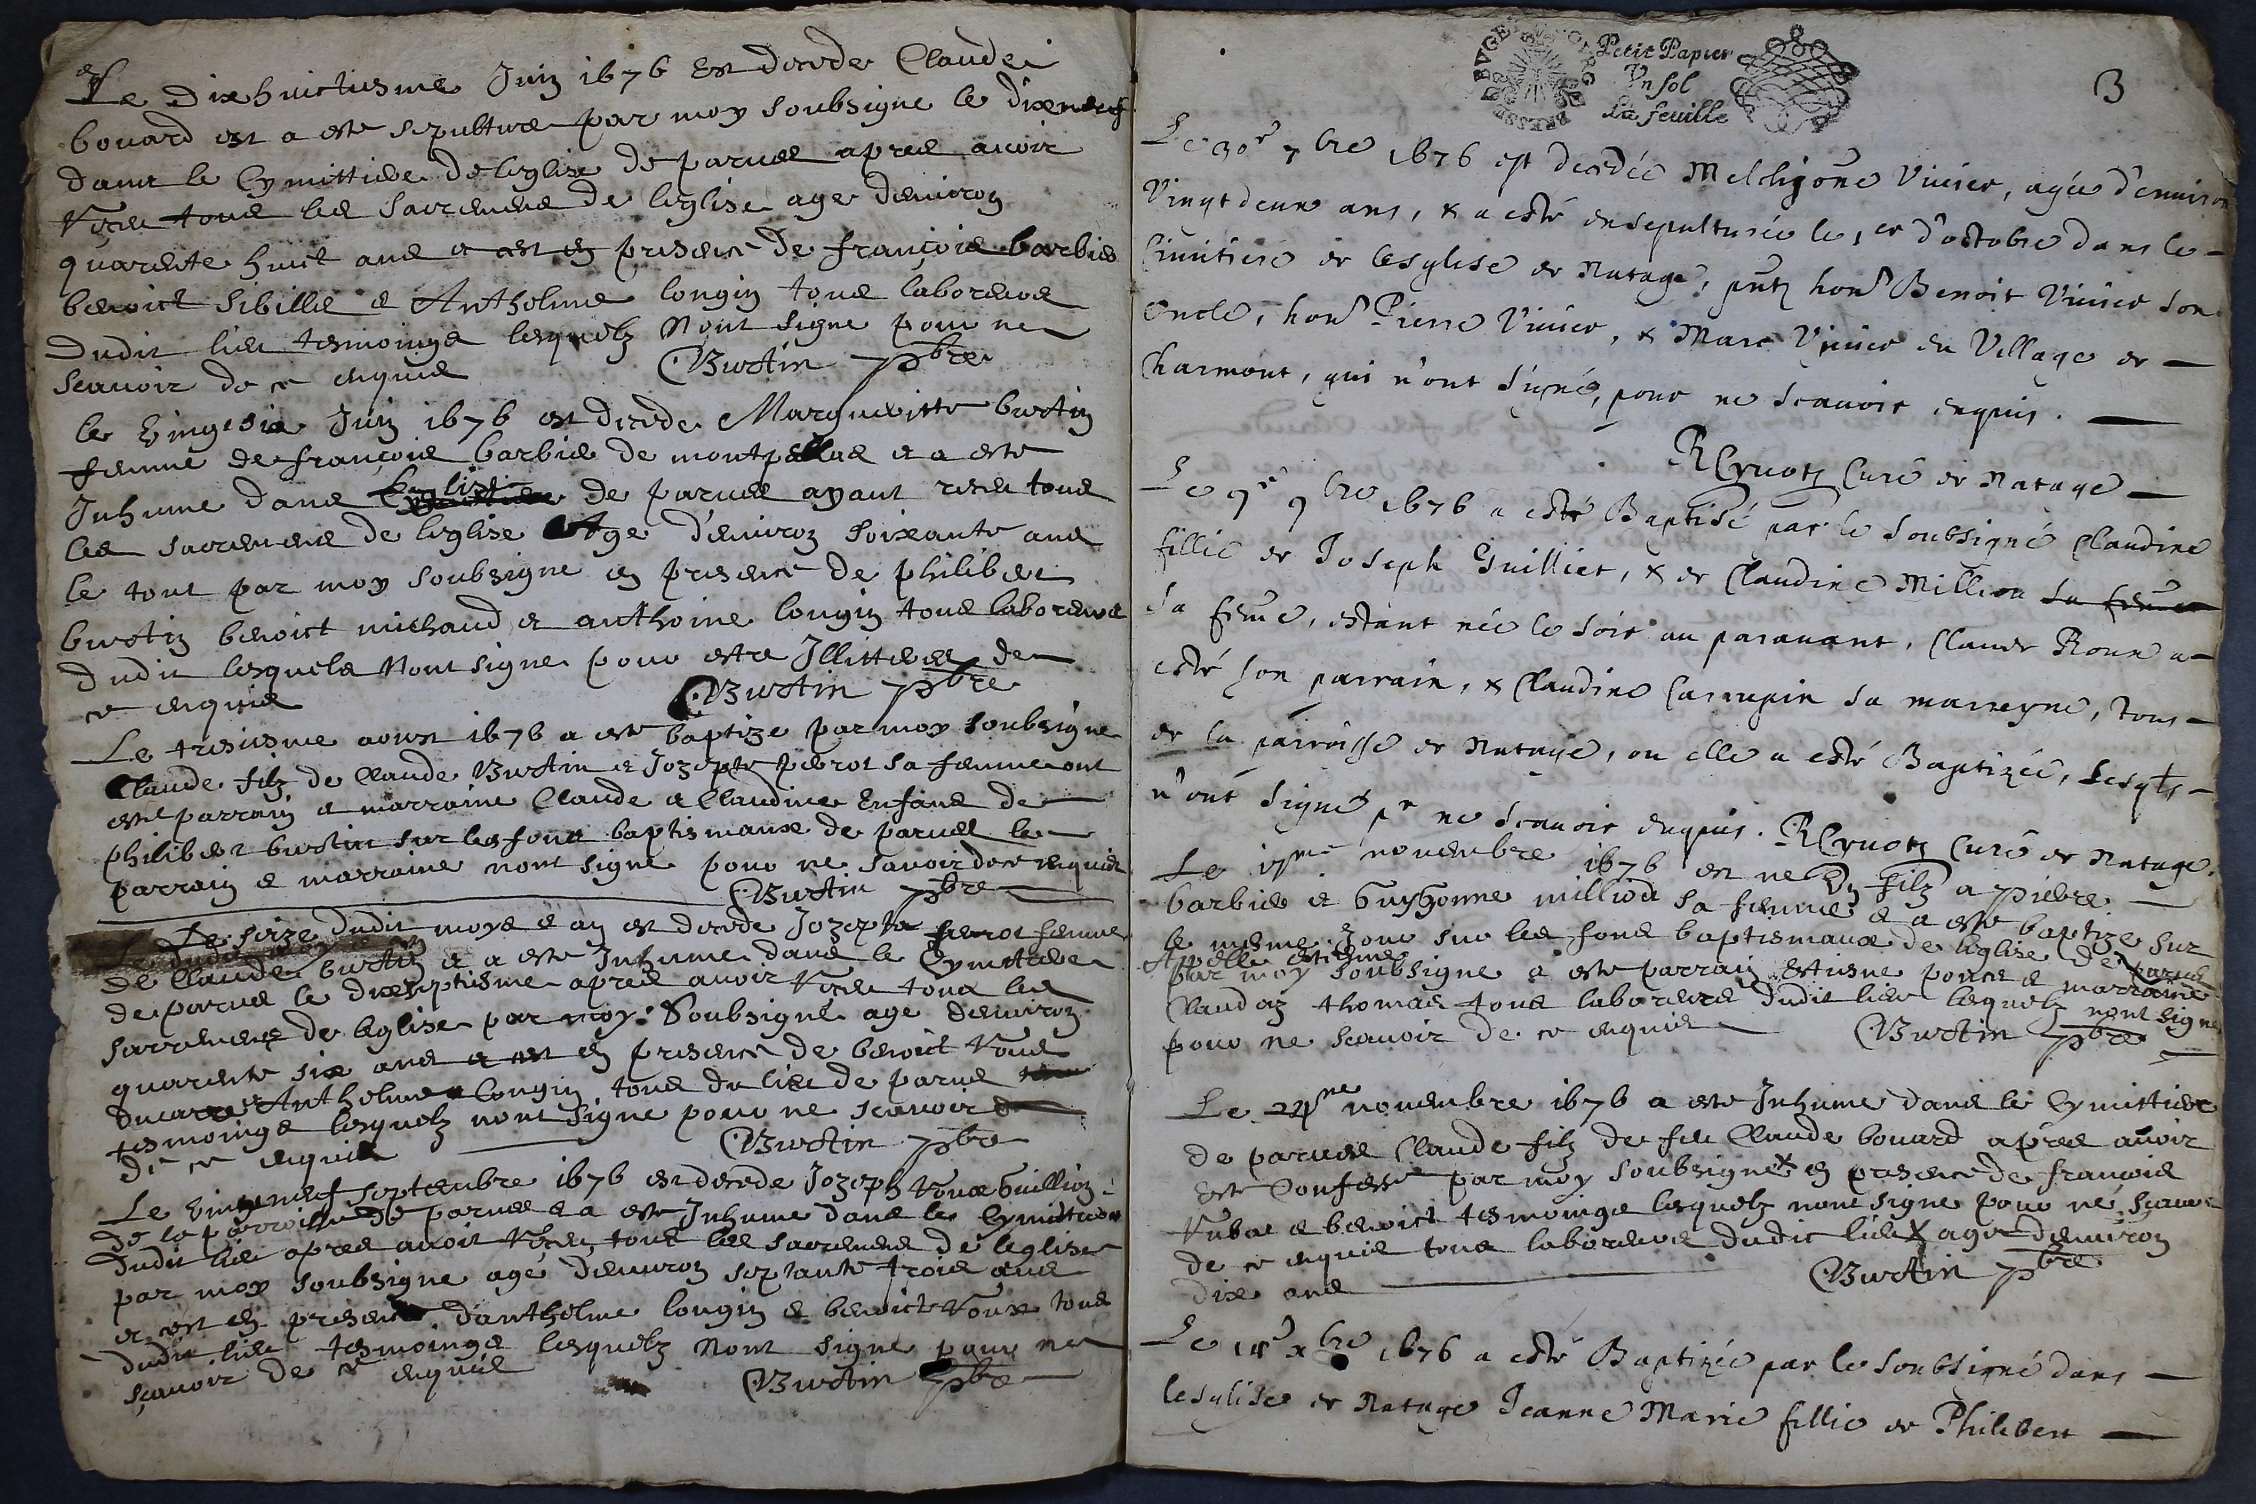 Le dixhuictiesme Juin 1676 est decede Claude
bouard et a este sepulture par moy soubsigne le dixneuf
dans le Cymittiere de leglise de parves apres avoir
receu tous les sacremens de leglise age denviron
quarente huict ans et est en presence de françois barbier
benoict sibille et Anthelme longin tous laboreurs
dudit lieu tesmoings lesquelz nont signe pour ne
scavoir de ce enquis Burtin pbre
le vingtsix Juin 1676 est decede Margueritte burtin
femme de françois barbier de et a este
Inhume dans Leglise de parves ayant receu tous
les sacremens de leglise Age denviron soixante ans
le tout par moy soubsigne en presence de philibert
burtin benoict michaud et anthoine longin tous laboreurs
dudit lesquels nont signe pour estre Illitteres de
ce enquis Burtin pbre
Le tresiesme aoust 1676 a este baptize par moy soubsigne
Claude filz de Claude Burtin et Jozepte perrot sa femme ont
este parrain et marraine Claude et Claudine Enfans de
philibert burtin sur les fons baptismaux de parves le
parrain et marraine nont signe pour ne savoir de ce enquis
Burtin pbre
Le seize dudit moys et an est decede Jozepte perrot femme
de Claude burtin et a este Inhume dans le Cymittiere
de parves le dixseptiesme apres avoir receu tous les
sacremens de leglise par moy soubsigne age denviron
quarente six ans et est en presence de benoict roux
Anthelme longin tous du lieu de parves
tesmoings lesquelz nont signe pour ne scavoir
de ce enquis Burtin pbre
Le vingtneuf septembre 1676 est decede Jozeph roux Guillion
de la parroisse de parves et a este Inhume dans le Cymittiere
dudit lieu apres avoir receu tous les sacremens de leglise
par moy soubsigne age denviron septante trois ans
et est en presence danthelme longin et benoict roux tous
dudit lieu tesmoings lesquelz nont signe pour ne
scavoir de ce enquis Burtin pbre
Petit Papier
Un sol
La feuille
3
Le 30e 7bre 1676 est decedée Melchionne Vuiier, agée d'environ
Vingt deux ans, & a esté ensepulturée le 1er d'octobre dans le
Cimitiere de lesglise de Natage, pntz hon Benoit Vuiier son
Oncle, hon Pierre Vuiier, & Marc Vuiier du Village de
Charmont, qui n'ont signé, pour ne scavoir enquis.
Curé de Natage
Le 9e 9bre 1676 a esté Baptisé par le soubsigné Claudine
fillie de Joseph Guilliet, & de Claudine Million sa feme
sa feme, estant née le soir au paravant, Claude Roux a
esté son parrain, & Claudine Carrupin sa marreyne, tous
de la parroisse de Natage, ou elle a esté Baptizée, lesqls
n'ont signé pr ne scavoir enquis. Curé de Natage.
Le novembre 1676 est ne Un filz a pierre
barbier et Guygonne million sa femme et a este baptize sur
le mesme Jour sur les fons baptismaux de leglise de parves
Appelle estienne
par moy soubsigne a este parrain estienne ponce et marraine
Claudaz thomas tous laboreurs dudit lieu lesquelz nont signe
pour ne scavoir de ce enquis Burtin pbre
Le 24me novembre 1676 a este Inhume dans le Cymittiere
de parves Claude filz de feu Claude bouard apres avoir
este Confesse par moy soubsigne en presence de françois
et benoict tesmoings lesquelz nont signe pour ne scavoir
de ce enquis tous laboreurs dudit lieu age denviron
dix ans Burtin pbre
Le xbre 1676 a esté Baptizée par le soubsigné dans
lesglise de Natage Jeanne Marie fillie de Philibert